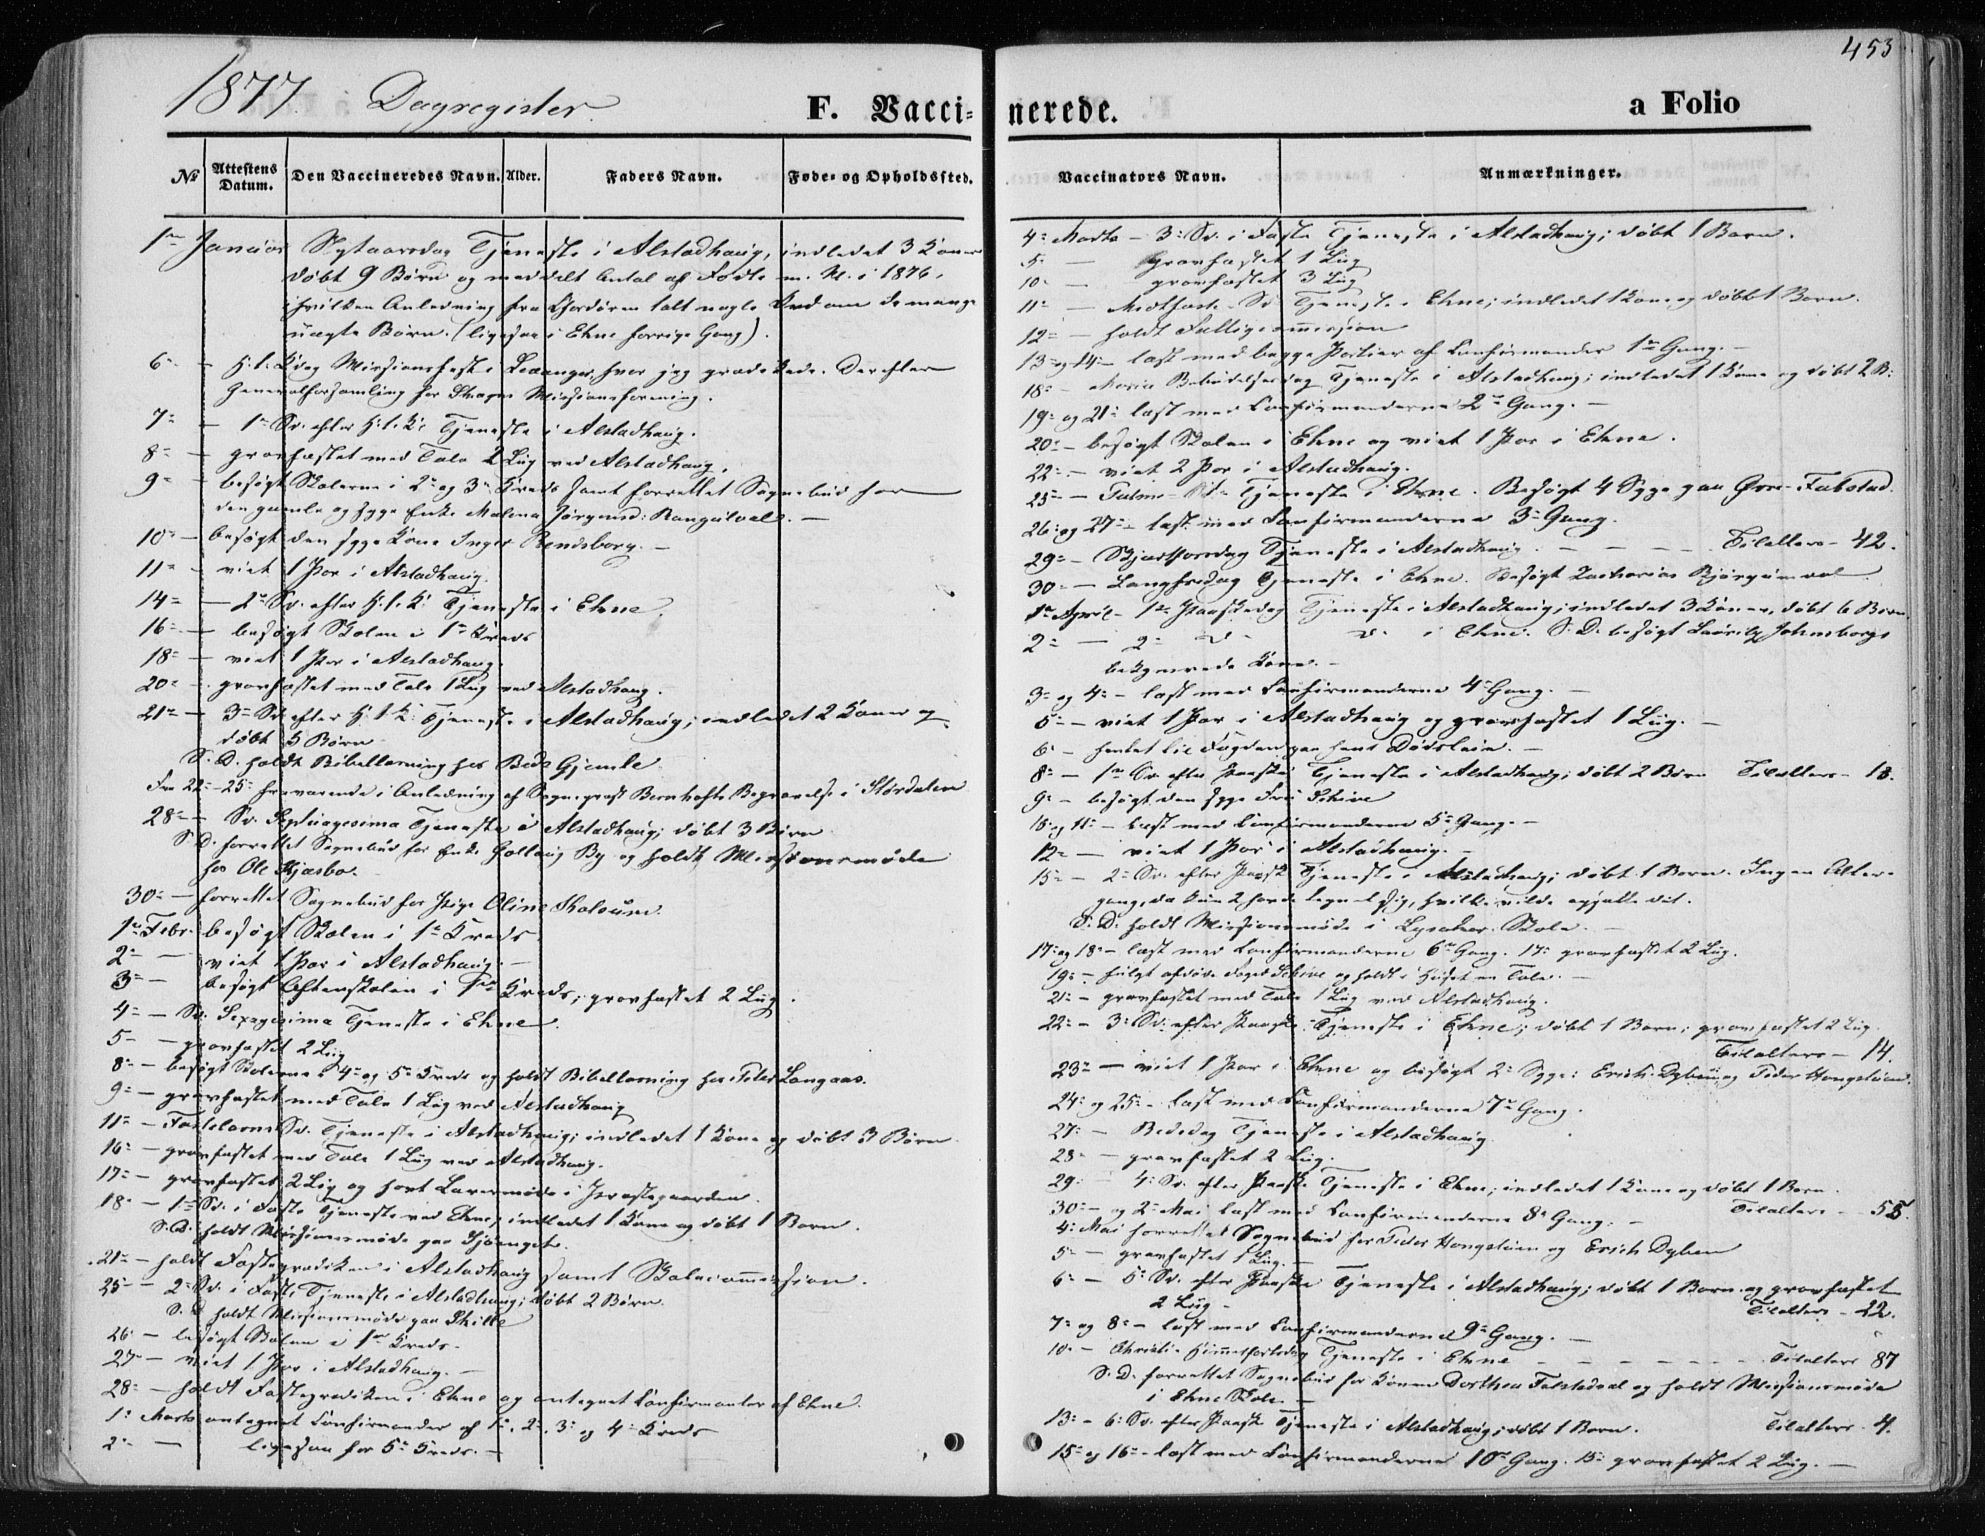 453
1877. Dagregister.
F. Vaccinerede.
a Folio
No
Attestens Datum.
Den Vaccineredes Navn.
Alder.
Faders Navn.
Føde- og Opholdssted.
Vaccinators Navn.
Anmærkninger.
1ste Januar Nytaarsdag Tjeneste i Alstadhaug, indledet 3 Koner
døbt 9 Børn og meddelt Antal af Fødte m. M. i 1876,
i hvilken Anledning fra Chordøren talt nogle Ord om de mange
uægte Børn. (ligesaa i Ekne forrige Gang).
6te – H. 3 K. Dag Missionsfest i Levanger, hvor jeg prædikede. Derefter
Generalforsamling for Skogns Missionsforening.
7de – 1ste Sø. efter H. 3 K. Tjeneste i Alstadhaug.
8de – gravfæstet med Tale 2 Lig ved Alstadhaug.
9de – besøgt Skolerne i 2den og 3die Kreds samt forrettet Sognebud hos
den gamle og syge Enke Malena Jørgensd:
10de – besøgt den syge Kone Inger Rendsborg. –
11te – viet 1 Par i Alstadhaug.
14de – 2den Sø. efter H. 3 K. Tjeneste i Ekne.
16de – besøgt Skolen i 1ste Kreds
18de – viet 1 Par i Alstadhaug.
20de – gravfæstet med Tale 1 Lig ved Alstadhaug.
21de – 3die Sø. efter H. 3 K. Tjeneste i Alstadhaug; indledet 2 Koner og
døbt 5 Børn
S. D. holdt Bibellæsning hos Beds Gjemle
Fra 22–25 fraværende i Anledning af Sogneprest Bernhofts Begravelse i Størdalen
28de – Sø. Septuagesima Tjeneste i Alstadhaug; døbt 3 Børn
S. D. forrettet Sognebud for Enke Gollaug By og holdt Missionsmøde
hos Ole Kjæsbo.
30te – forrettet Sognebud for Pige Oline
1ste Febr. besøgt Skolen i 1ste Kreds
2den – viet 1 Par i Alstadhaug. –
3die – besøgt Aftenskolen i 1ste Kreds; gravfæstet 2 Lig.
4de – Sø. Sexagesima Tjeneste i Ekne.
5te – gravfæstet 2 Lig
8de – besøgt Skolerne i 4de og 5te Kreds og holdt Bibellæsning hos Peter Langaas.
9de – gravfæstet med Tale 1 Lig ved Alstadhaug
11te – Fastelavns Sø. Tjeneste i Alstadhaug; indledet 1 Kone og døbt 3 Børn.
16de – gravfæstet med Tale 1 Lig ved Alstadhaug.
17de – gravfæstet 2 Lig og havt Lærermøde i Præstegaarden.
18de – 1ste Sø. i Faste Tjeneste ved Ekne; indledet 1 Kone og døbt 1 Barn.
S. D. holdt Missionsmøde paa
21de – holdt Fasteprædiken i Alstadhaug samt Skolecommission.
25de – 2den Sø. i Faste Tjeneste i Alstadhaug; døbt 2 Børn.
S. D. holdt Missionsmøde paa
26de – besøgt Skolen i 1ste Kreds.
27de – viet 1 Par i Alstadhaug. –
28de – holdt Fasteprædiken i Ekne og antegnet Confirmanter af Ekne.
1ste Marts antegnet Confirmander af 1ste, 2den, 3die og 4de Kreds
2den – ligesaa for 5te Kreds. –
4de Marts – 3die Sø. i Faste Tjeneste i Alstadhaug; døbt 1 Barn.
5te – gravfæstet 1 Lig
10de – gravfæstet 3 Lig
11te – Midfaste Sø. Tjeneste i Ekne; indledet 1 Kone og døbt 1 Barn.
12te – holdt Fattigcommission
13de og 14de – læst med begge Partier af Confirmander 1ste Gang. –
18de – Mariæ Bebudelsesdag Tjeneste i Alstadhaug; indledet 1 Kone og døbt 2 B.
19de og 21de læst med Confirmanderne 2den Gang. –
20de – besøgt Skolen i Ekne og viet 1 Par i Ekne.
22de – viet 2 Par i Alstadhaug.
25de – Palme-Sø. Tjeneste i Ekne. Besøgt 4 Syge paa Øvre-Falstad.
26de og 27de – læst med Confirmanderne 3die Gang.
29de – Skjærtorsdag Tjeneste i Alstadhaug. – – – – Tilalters – 42.
30te – Langfredag Tjeneste i Ekne. Besøgt Zacharias
1ste April – 1ste Paaskedag Tjeneste i Alstadhaug; indledet 3 Koner, døbt 6 Børn
2den – 2den D. D. i Ekne. S. D. besøgt Lauritz Johnsborgs
bekymrede Kone. –
3die og 4de – læst med Confirmanderne 4de Gang. –
5te – viet 1 Par i Alstadhaug og gravfæstet 1 Lig. –
6te – hentet til Fogden paa hans Dødsleie. –
8de – 1ste Sø. efter Paaske Tjeneste i Alstadhaug; døbt 2 Børn Tilalters – 18.
9de – besøgt den syge Fru Schive
10de og 11te – læst med Confirmanderne 5te Gang. –
12te – viet 1 Par i Alstadhaug. –
15de – 2den Sø. efter Paaske Tjeneste i Alstadhaug; døbt 1 Barn. Ingen Alter-
gang, da kun 2 havde tegnet sig, hvilke vilde opsætte dit.
S. D. holdt Missionsmøde i Lysaker Skole. –
17de og 18de – læst med Confirmanderne 6te Gang. 17de gravfæstet 2 Lig.
19de – fulgt afdøde Foged Schive og holdt i Huset en Tale. –
21de – gravfæstet med Tale 1 Lig ved Alstadhaug.
22de – 3die Sø. efter Paaske Tjeneste i Ekne; døbt 1 Barn; gravfæstet 2 Lig.
Tilalters – 14.
23de – viet 1 Par i Ekne og besøgt 2 Syge: Erich Dyben og Peder
24de og 25de – læst med Confirmanderne 7de Gang.
27de – Bededag Tjeneste i Alstadhaug.
28de – gravfæstet 2 Lig.
29de – 4de Sø. efter Paaske Tjeneste i Ekne; indledet 1 Kone og døbt 1 Barn.
30te – og 2den Mai læst med Confirmanderne 8de Gang. – Tilalters – 55.
4de Mai forrettet Sognebud for Peder og Erich Dyben
5te – gravfæstet 1 Lig. –
6te – 5te Sø. efter Paaske Tjeneste i Alstadhaug; døbt 1 Barn og gravfæstet
2 Lig – Tilalters – 22.
7de og 8de – læst med Confirmanderne 9de Gang. –
10de – Christi Himmelfartsdag Tjeneste i Ekne – – – – Tilalters 87
S. D. forrettet Sognebud for Konen Dorthea Falstadval og holdt Missionsmøde
i Ekne Skole. –
13de – 6te Sø. efter Paaske Tjeneste i Alstadhaug; døbt 1 Barn. Tilalters – 4.
15de og 16de – læst med Confirmanderne 10de Gang. 15de gravfæstet 2 Lig. –